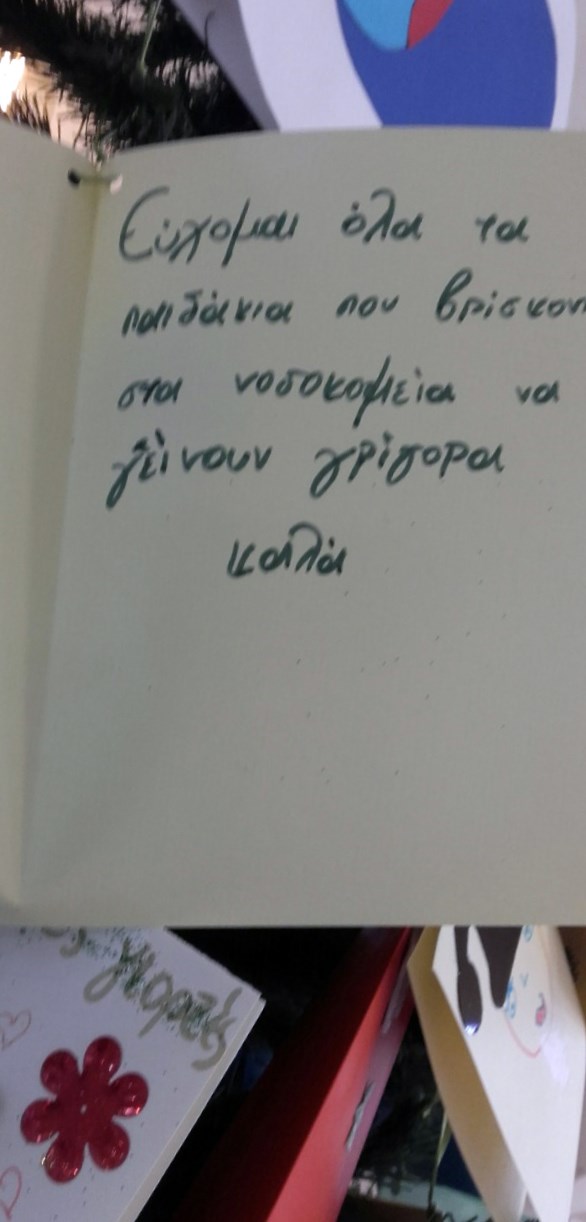 Εύχομαι όλα τα
παιδάκια που βρίσκον
στα νοσοκομεία να
γείνουν γρίγορα
καλά
γιορτές